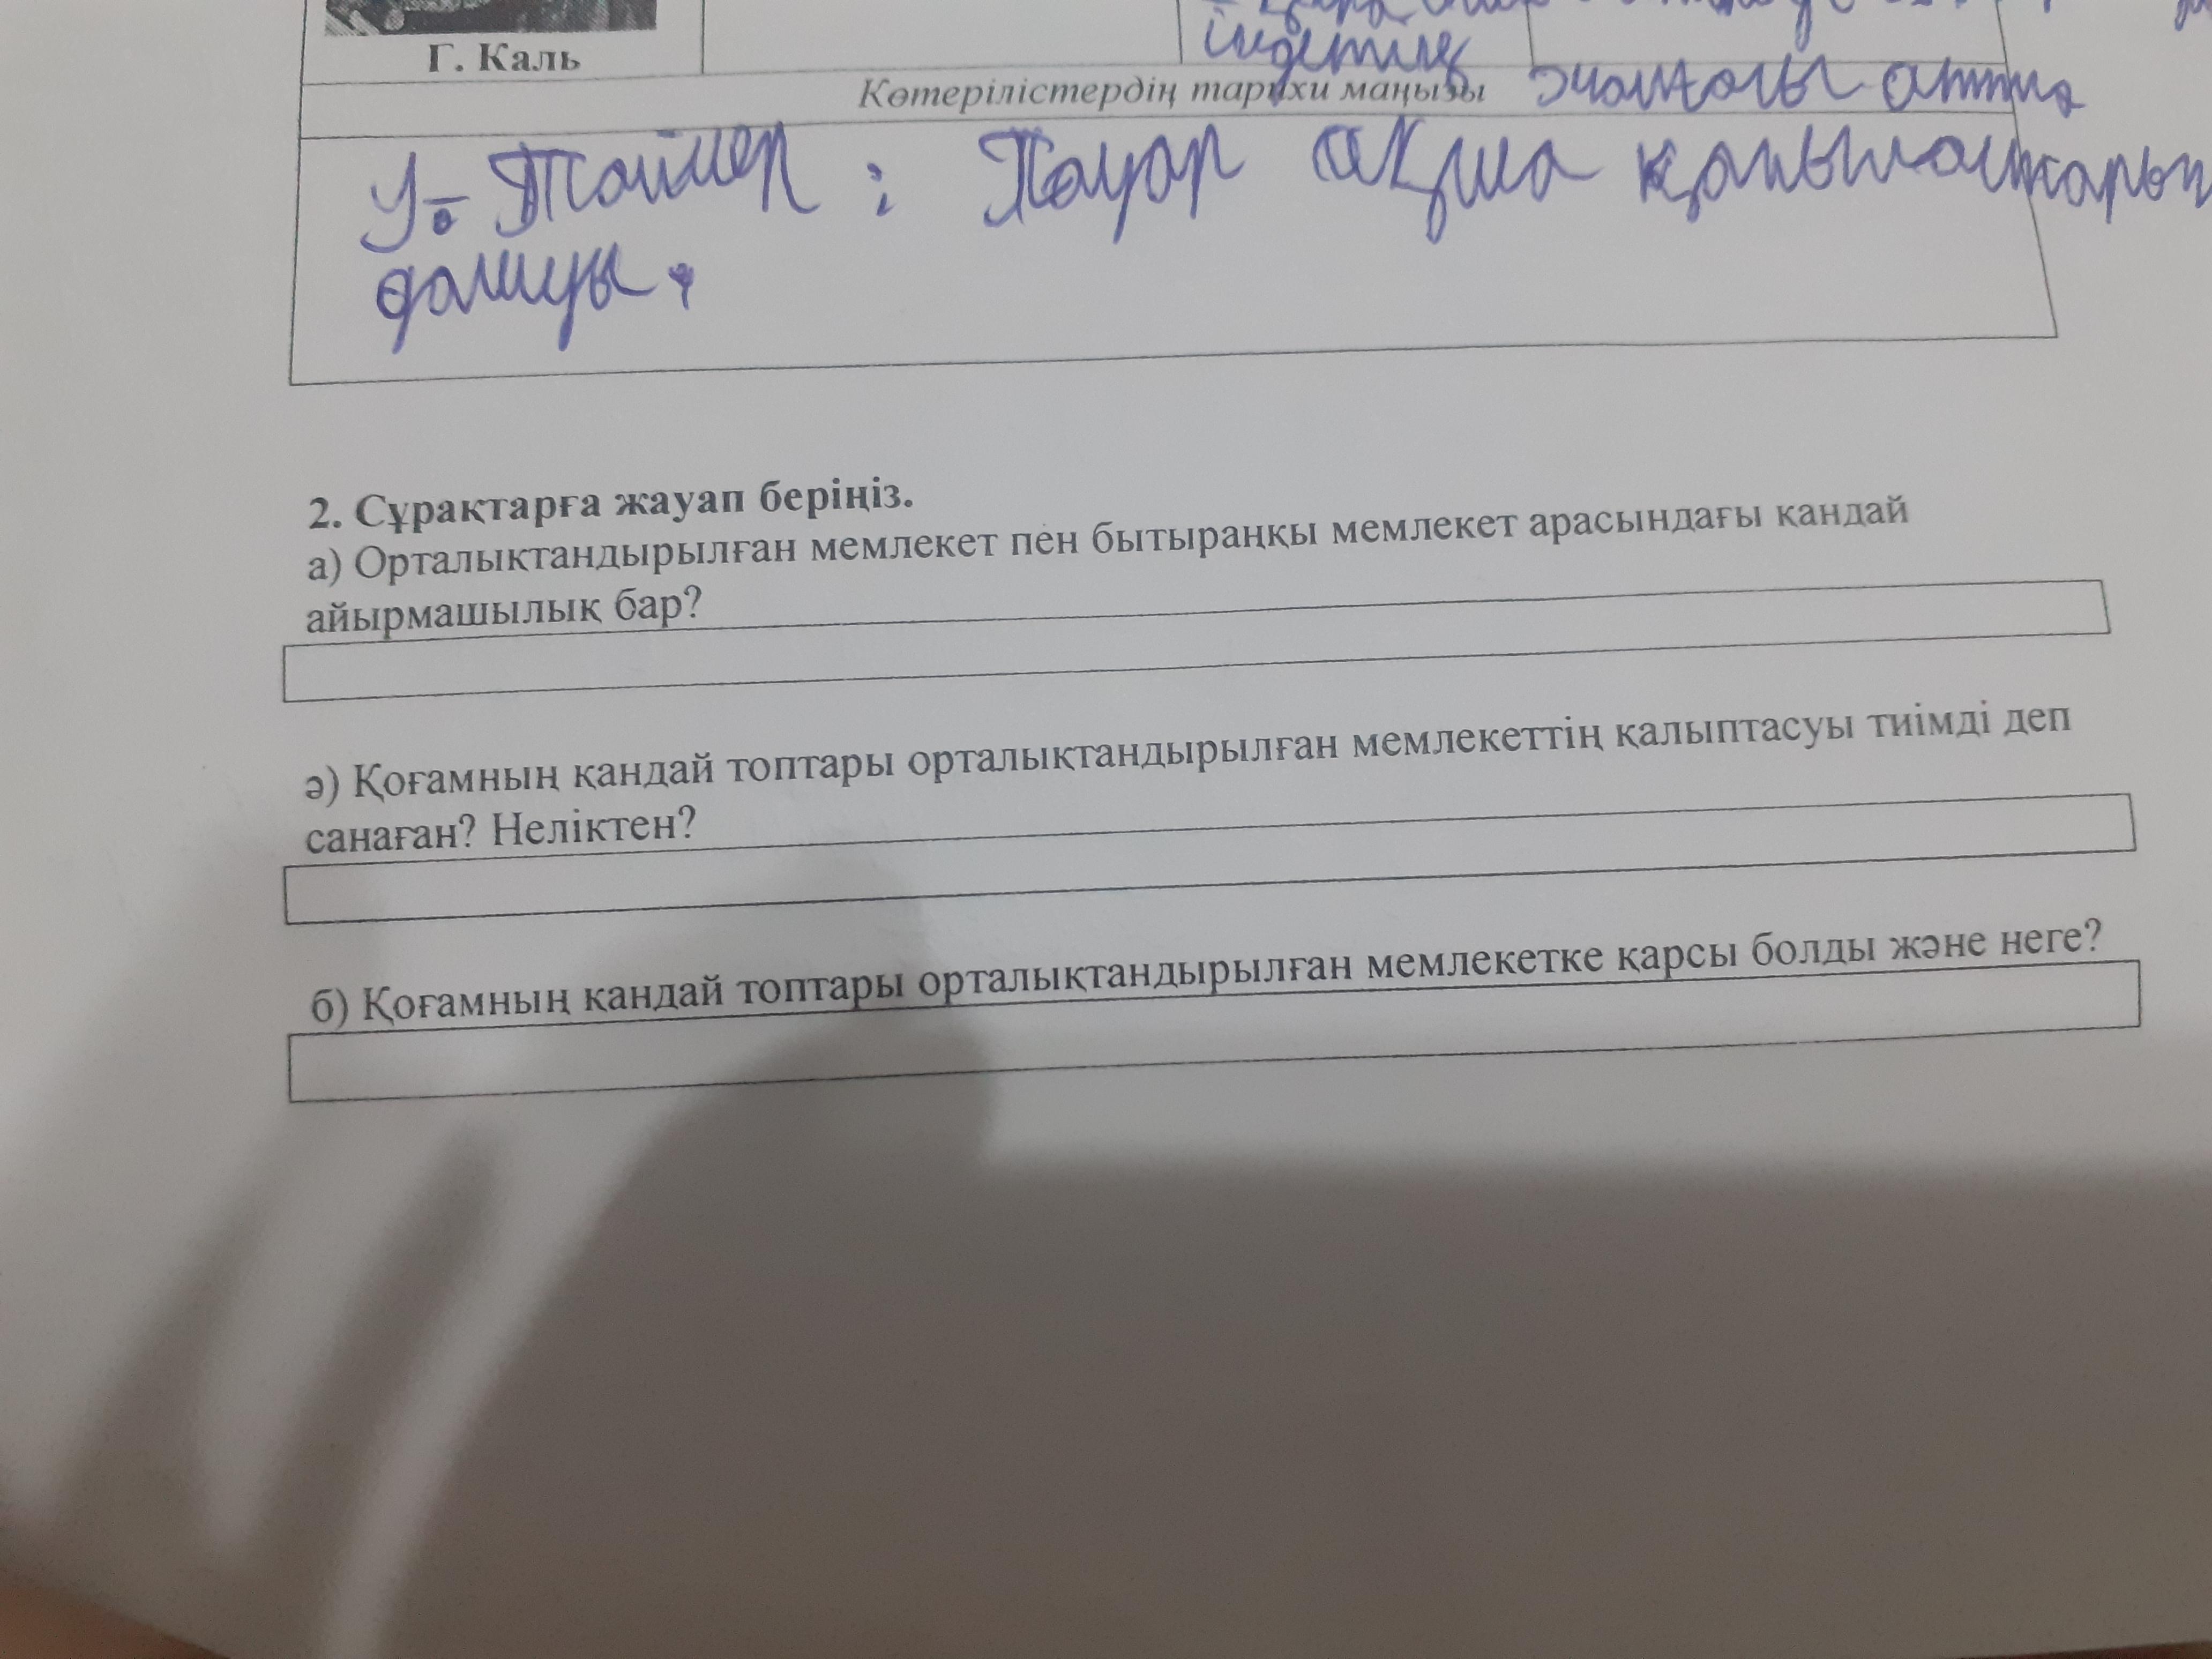 Г. Каль
індетің
Көтерілістердің тарихи маңызы
У. Тайлер : Тауар ақша қатынастарын
дамуы.
2. Сұрақтарға жауап беріңіз.
а) Орталықтандырылған мемлекет пен бытыраңқы мемлекет арасындағы қандай
айырмашылық бар?
ә) Қоғамның қандай топтары орталықтандырылған мемлекеттің қалыптасуы тиімді деп
санаған? Неліктен?
б) Қоғамның қандай топтары орталықтандырылған мемлекетке қарсы болды және неге?